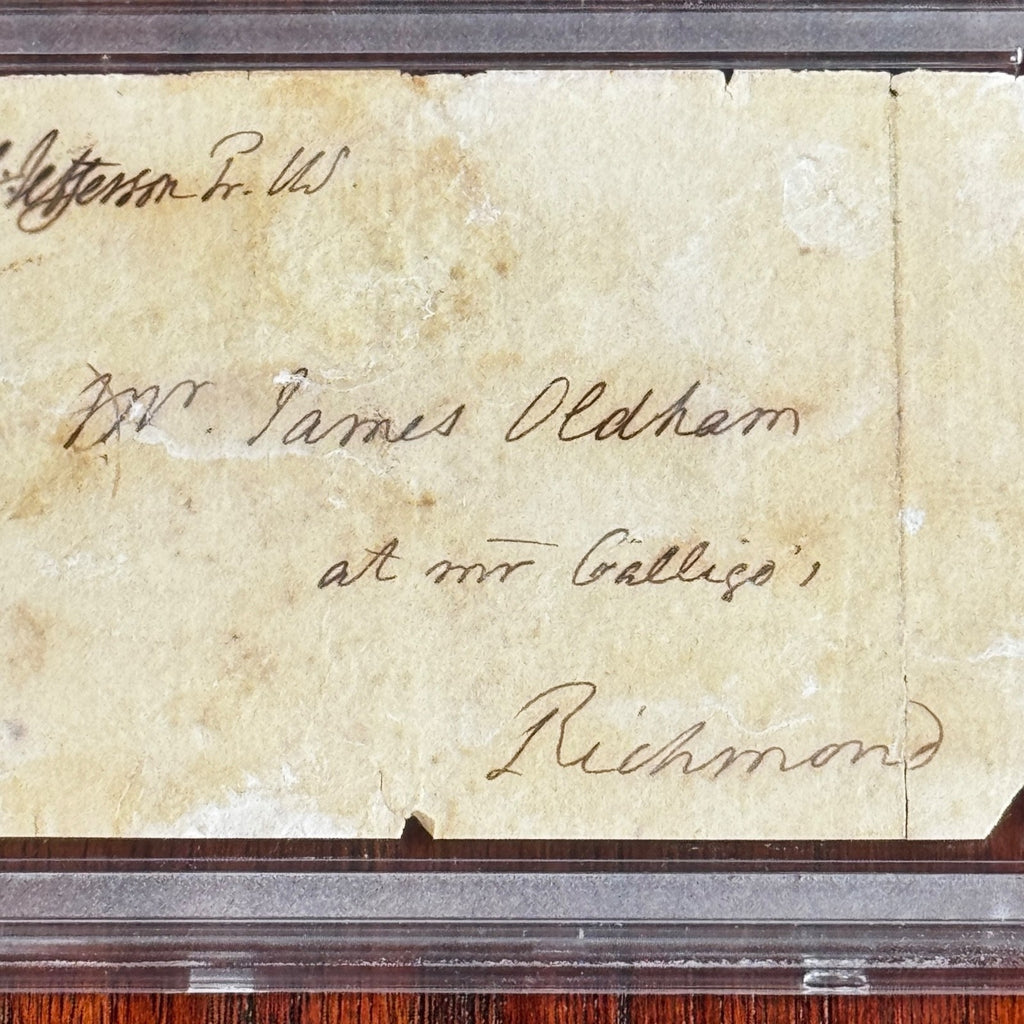 Jefferson Pr. US.
Mr. James Oldham
at mr Galligo's
Richmond